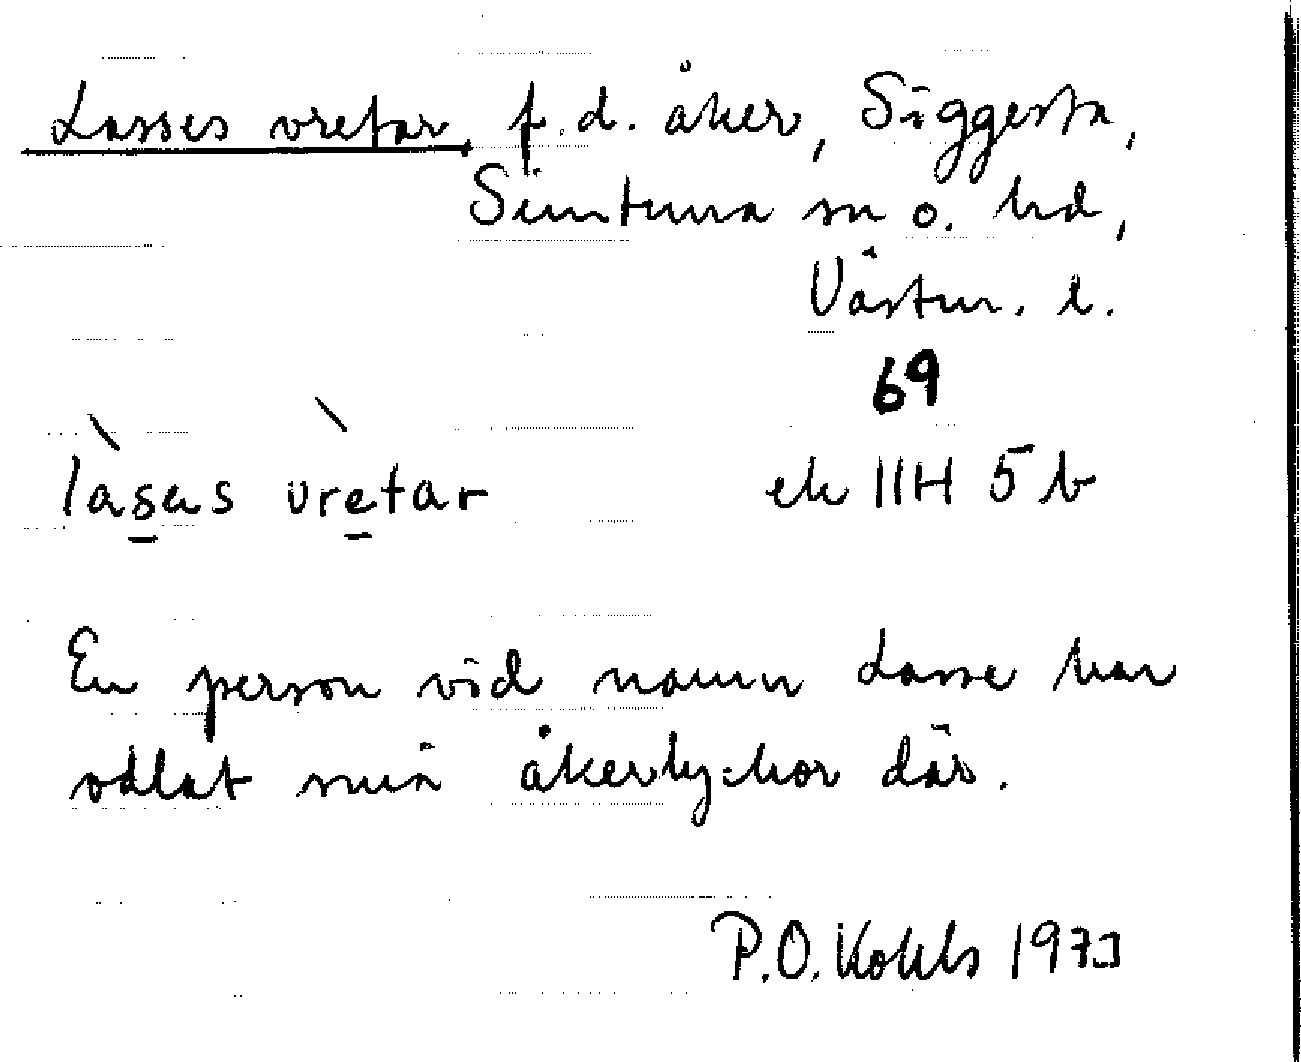 Lasses vretar, f.d. åker, Siggesta,
Simtuna sn o. hd,
Västm. l.
69
làsas vrètar ek 11H 5 b
En person vid namn Lasse har
odlat små åkerlyckor där.
P.O. Kohls 1973